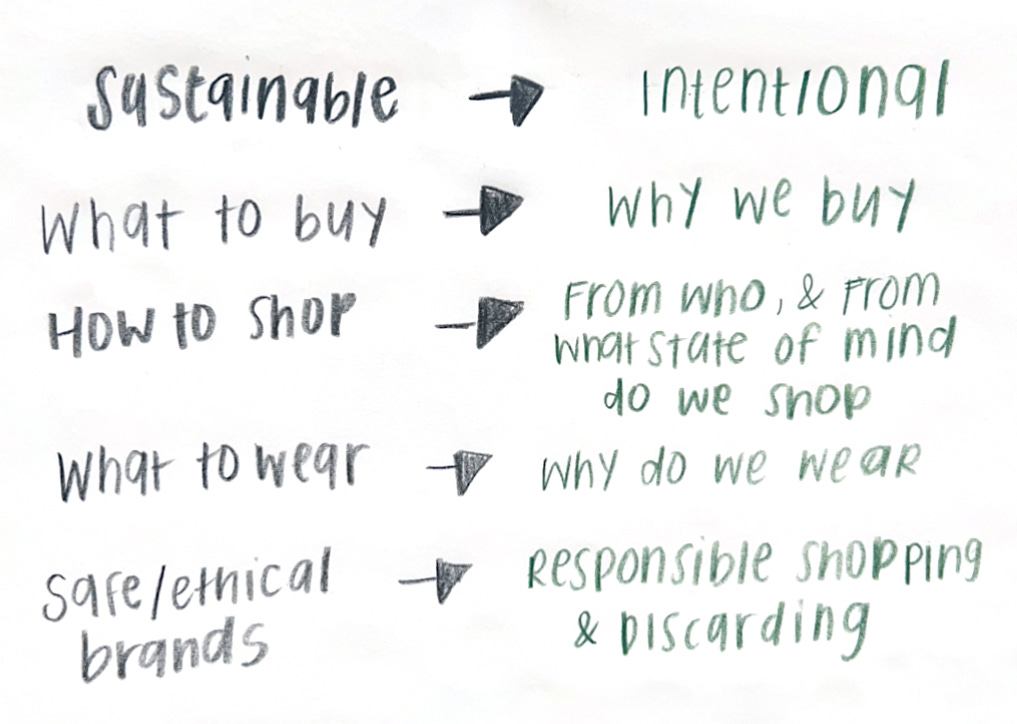 Sustainable → Intentional
What to buy → Why we buy
How to shop → From who, & from
what state of mind
do we shop
What to wear → Why do we wear
Safe/ethical → Responsible shopping
brands & Discarding